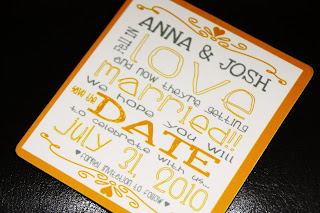 ANNA & JOSH
fell IN LOVE
and now they're getting
married!!
we hope you will
save the DATE
to celebrate with us...
July 31, 2010
♥ Formal Invitation to Follow ♥